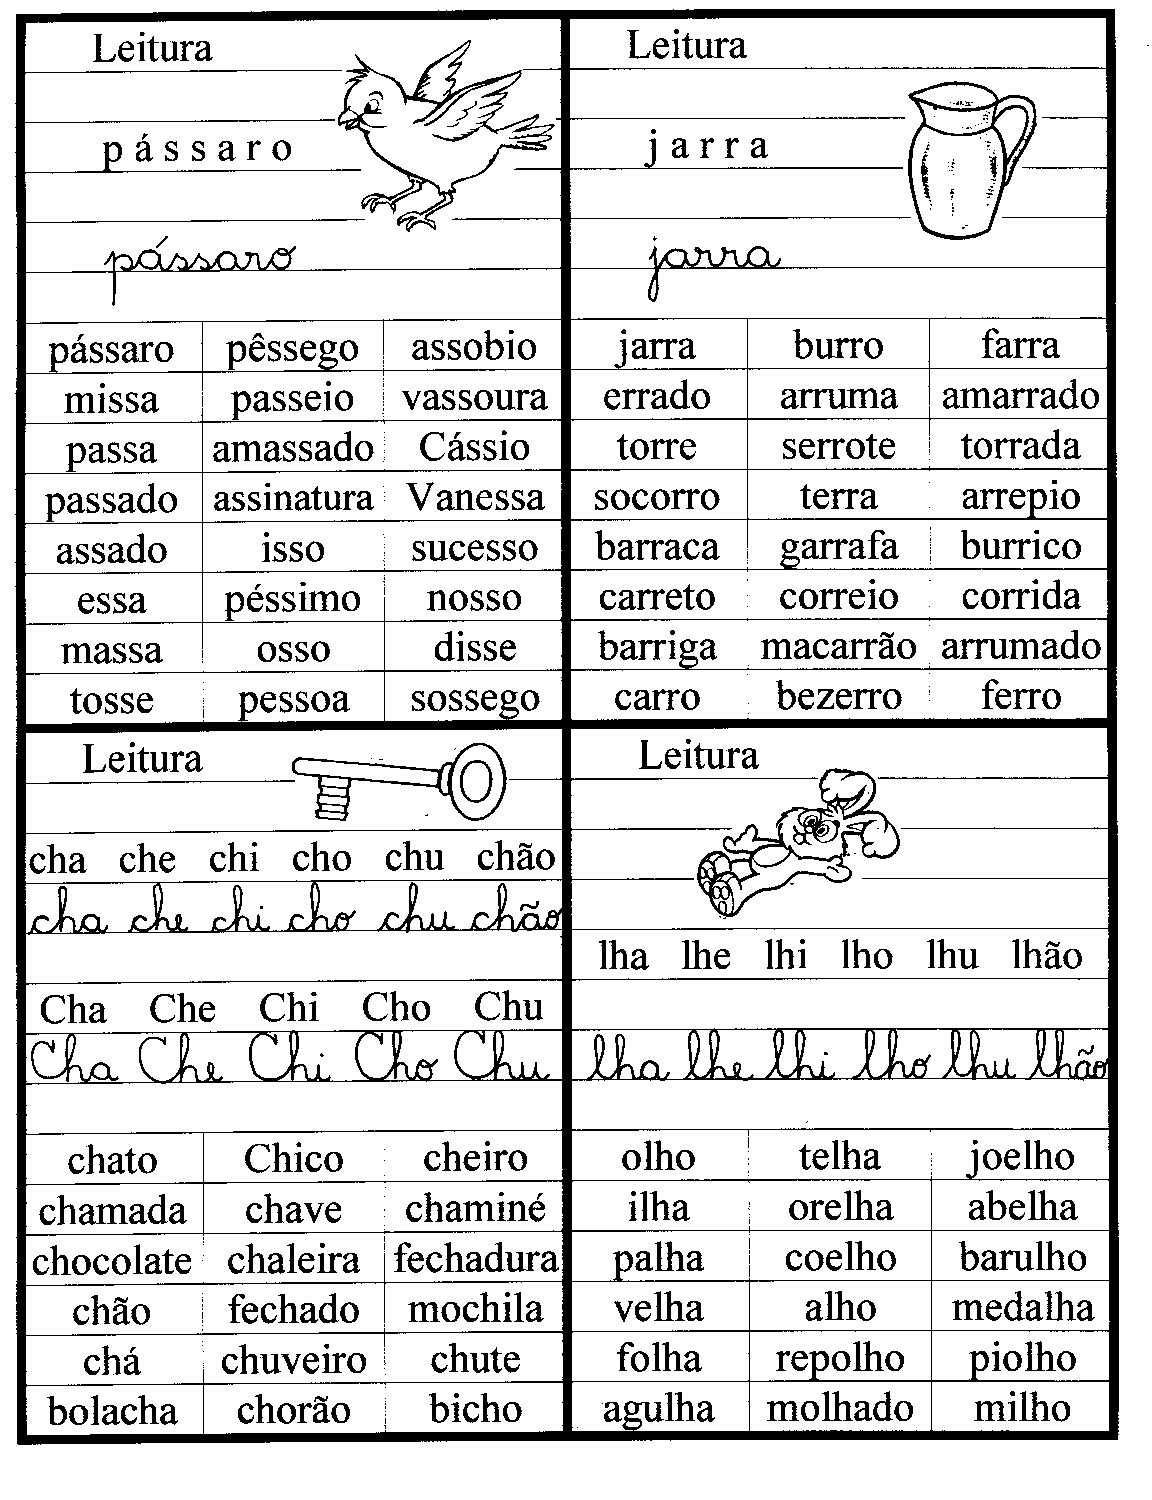 Leitura
p á s s a r o
pássaro
pássaro pêssego assobio
missa passeio vassoura
passa amassado Cássio
passado assinatura Vanessa
assado isso sucesso
essa péssimo nosso
massa osso disse
tosse pessoa sossego
Leitura
j a r r a
jarra
jarra burro farra
errado arruma amarrado
torre serrote torrada
socorro terra arrepio
barraca garrafa burrico
carreto correio corrida
barriga macarrão arrumado
carro bezerro ferro
Leitura
cha che chi cho chu chão
cha che chi cho chu chão
Cha Che Chi Cho Chu
Cha Che Chi Cho Chu
chato Chico cheiro
chamada chave chaminé
chocolate chaleira fechadura
chão fechado mochila
chá chuveiro chute
bolacha chorão bicho
Leitura
lha lhe lhi lho lhu lhão
lha lhe lhi lho lhu lhão
olho telha joelho
ilha orelha abelha
palha coelho barulho
velha alho medalha
folha repolho piolho
agulha molhado milho